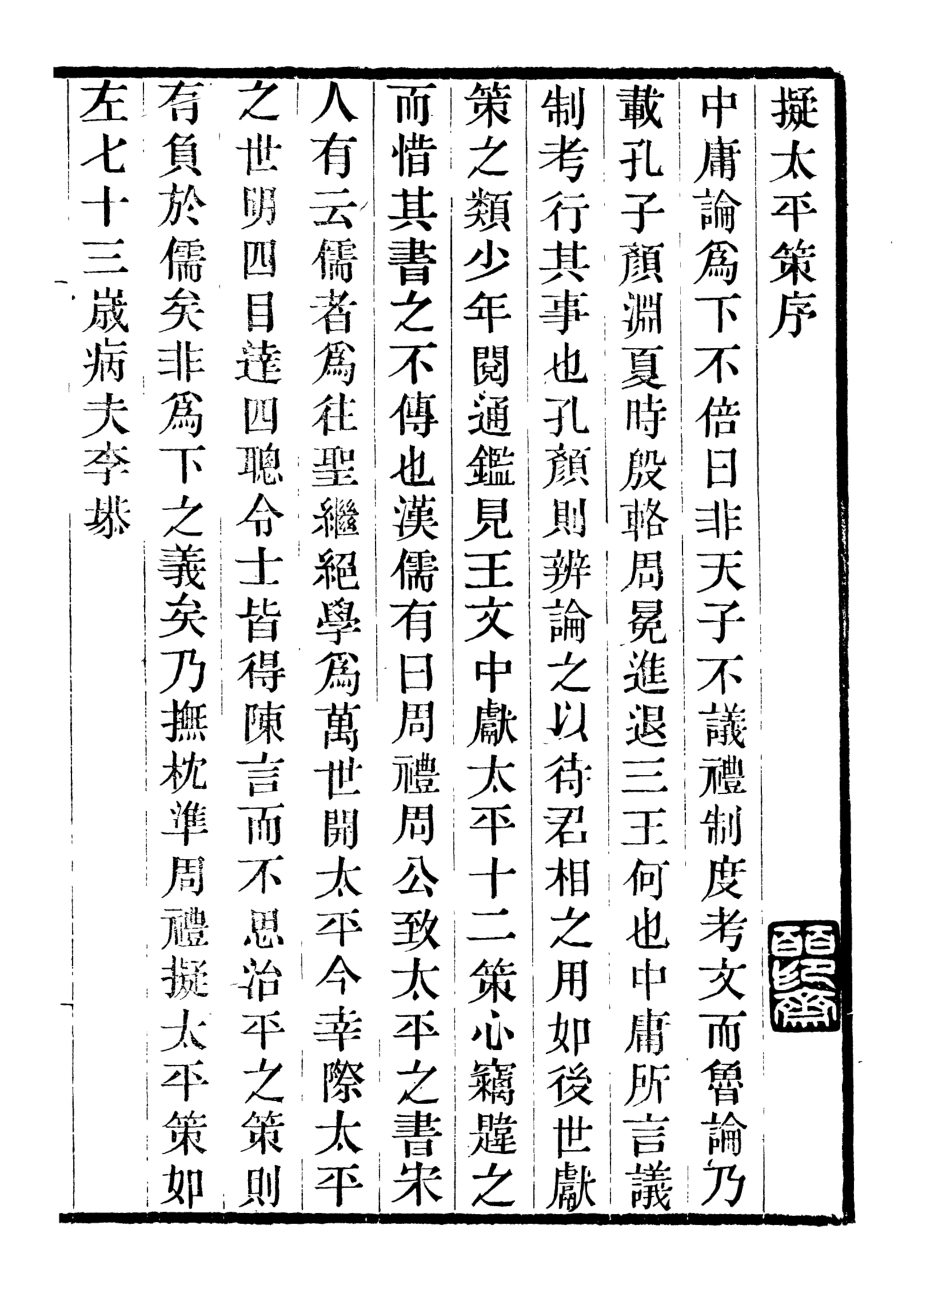 擬太平策序
中庸論爲下不倍曰非天子不議禮制度考文而魯論乃
載孔子顏淵夏時殷輅周冕進退三王何也中庸所言議
制考行其事也孔顏則辨論之以待君相之用如後世獻
策之類少年閱通鑑見王文中獻太平十二策心竊韙之
而惜其書之不傳也漢儒有曰周禮周公致太平之書宋
人有云儒者爲往聖繼絕學爲萬世開太平今幸際太平
之世明四目達四聰令士皆得陳言而不思治平之策則
有負於儒矣非爲下之義矣乃撫枕準周禮擬太平策如
左七十三歲病夫李塨